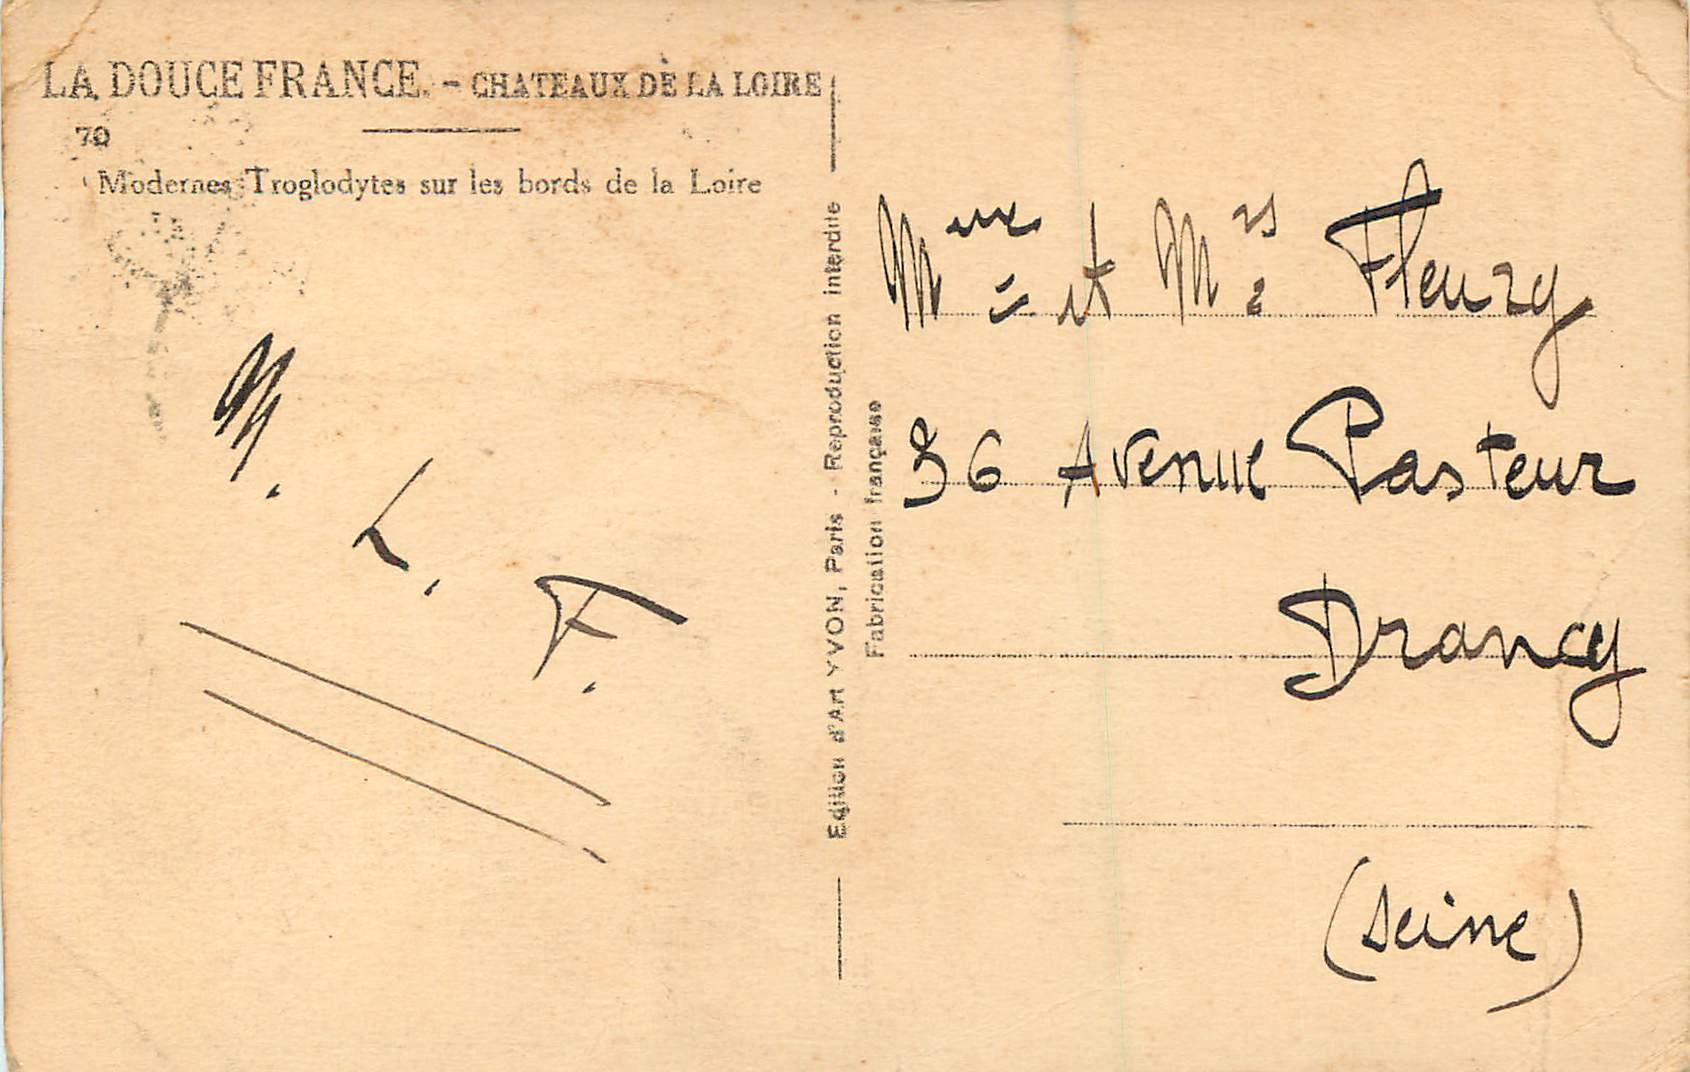 LA DOUCE FRANCE. - CHATEAUX DE LA LOIRE
70
Modernes Troglodytes sur les bords de la Loire
M. L. F.
Edition d'Art YVON, Paris - Reproduction interdite
Fabrication française
Meux et Mrs Fleury
36 Avenue Pasteur
Drancy
(Seine)